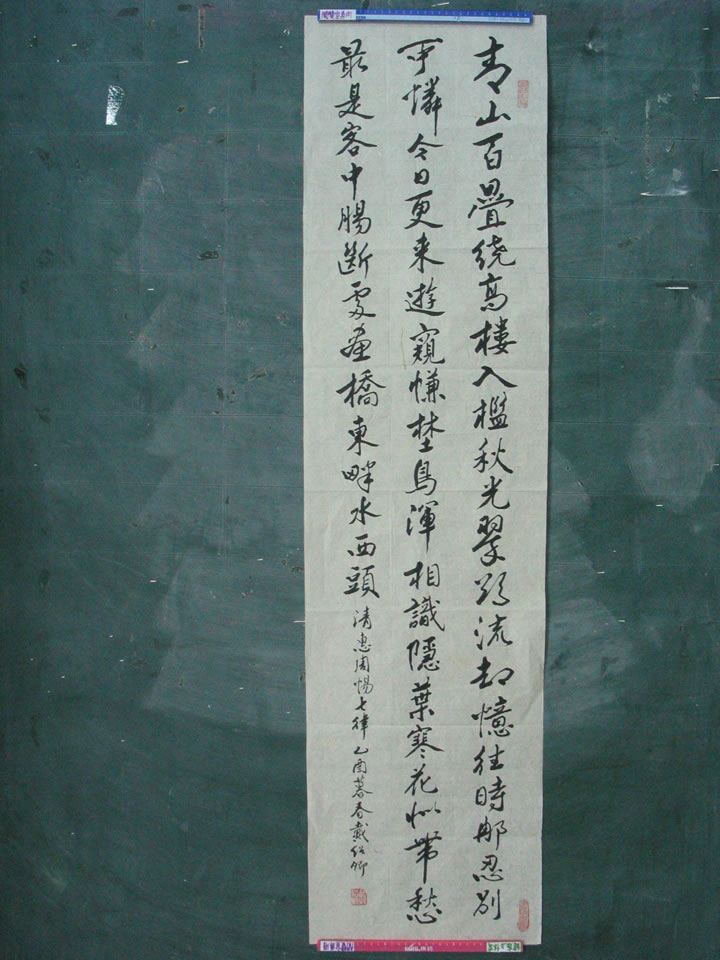 青山百疊繞高樓入檻秋光翠欲流却憶往時那忍別
可憐今日更来遊窺㡘埜鳥渾相識隱葉寒花似帶愁
最是客中腸斷處畫橋東畔水西頭清惠周惕七律乙酉暮春戴紹卿